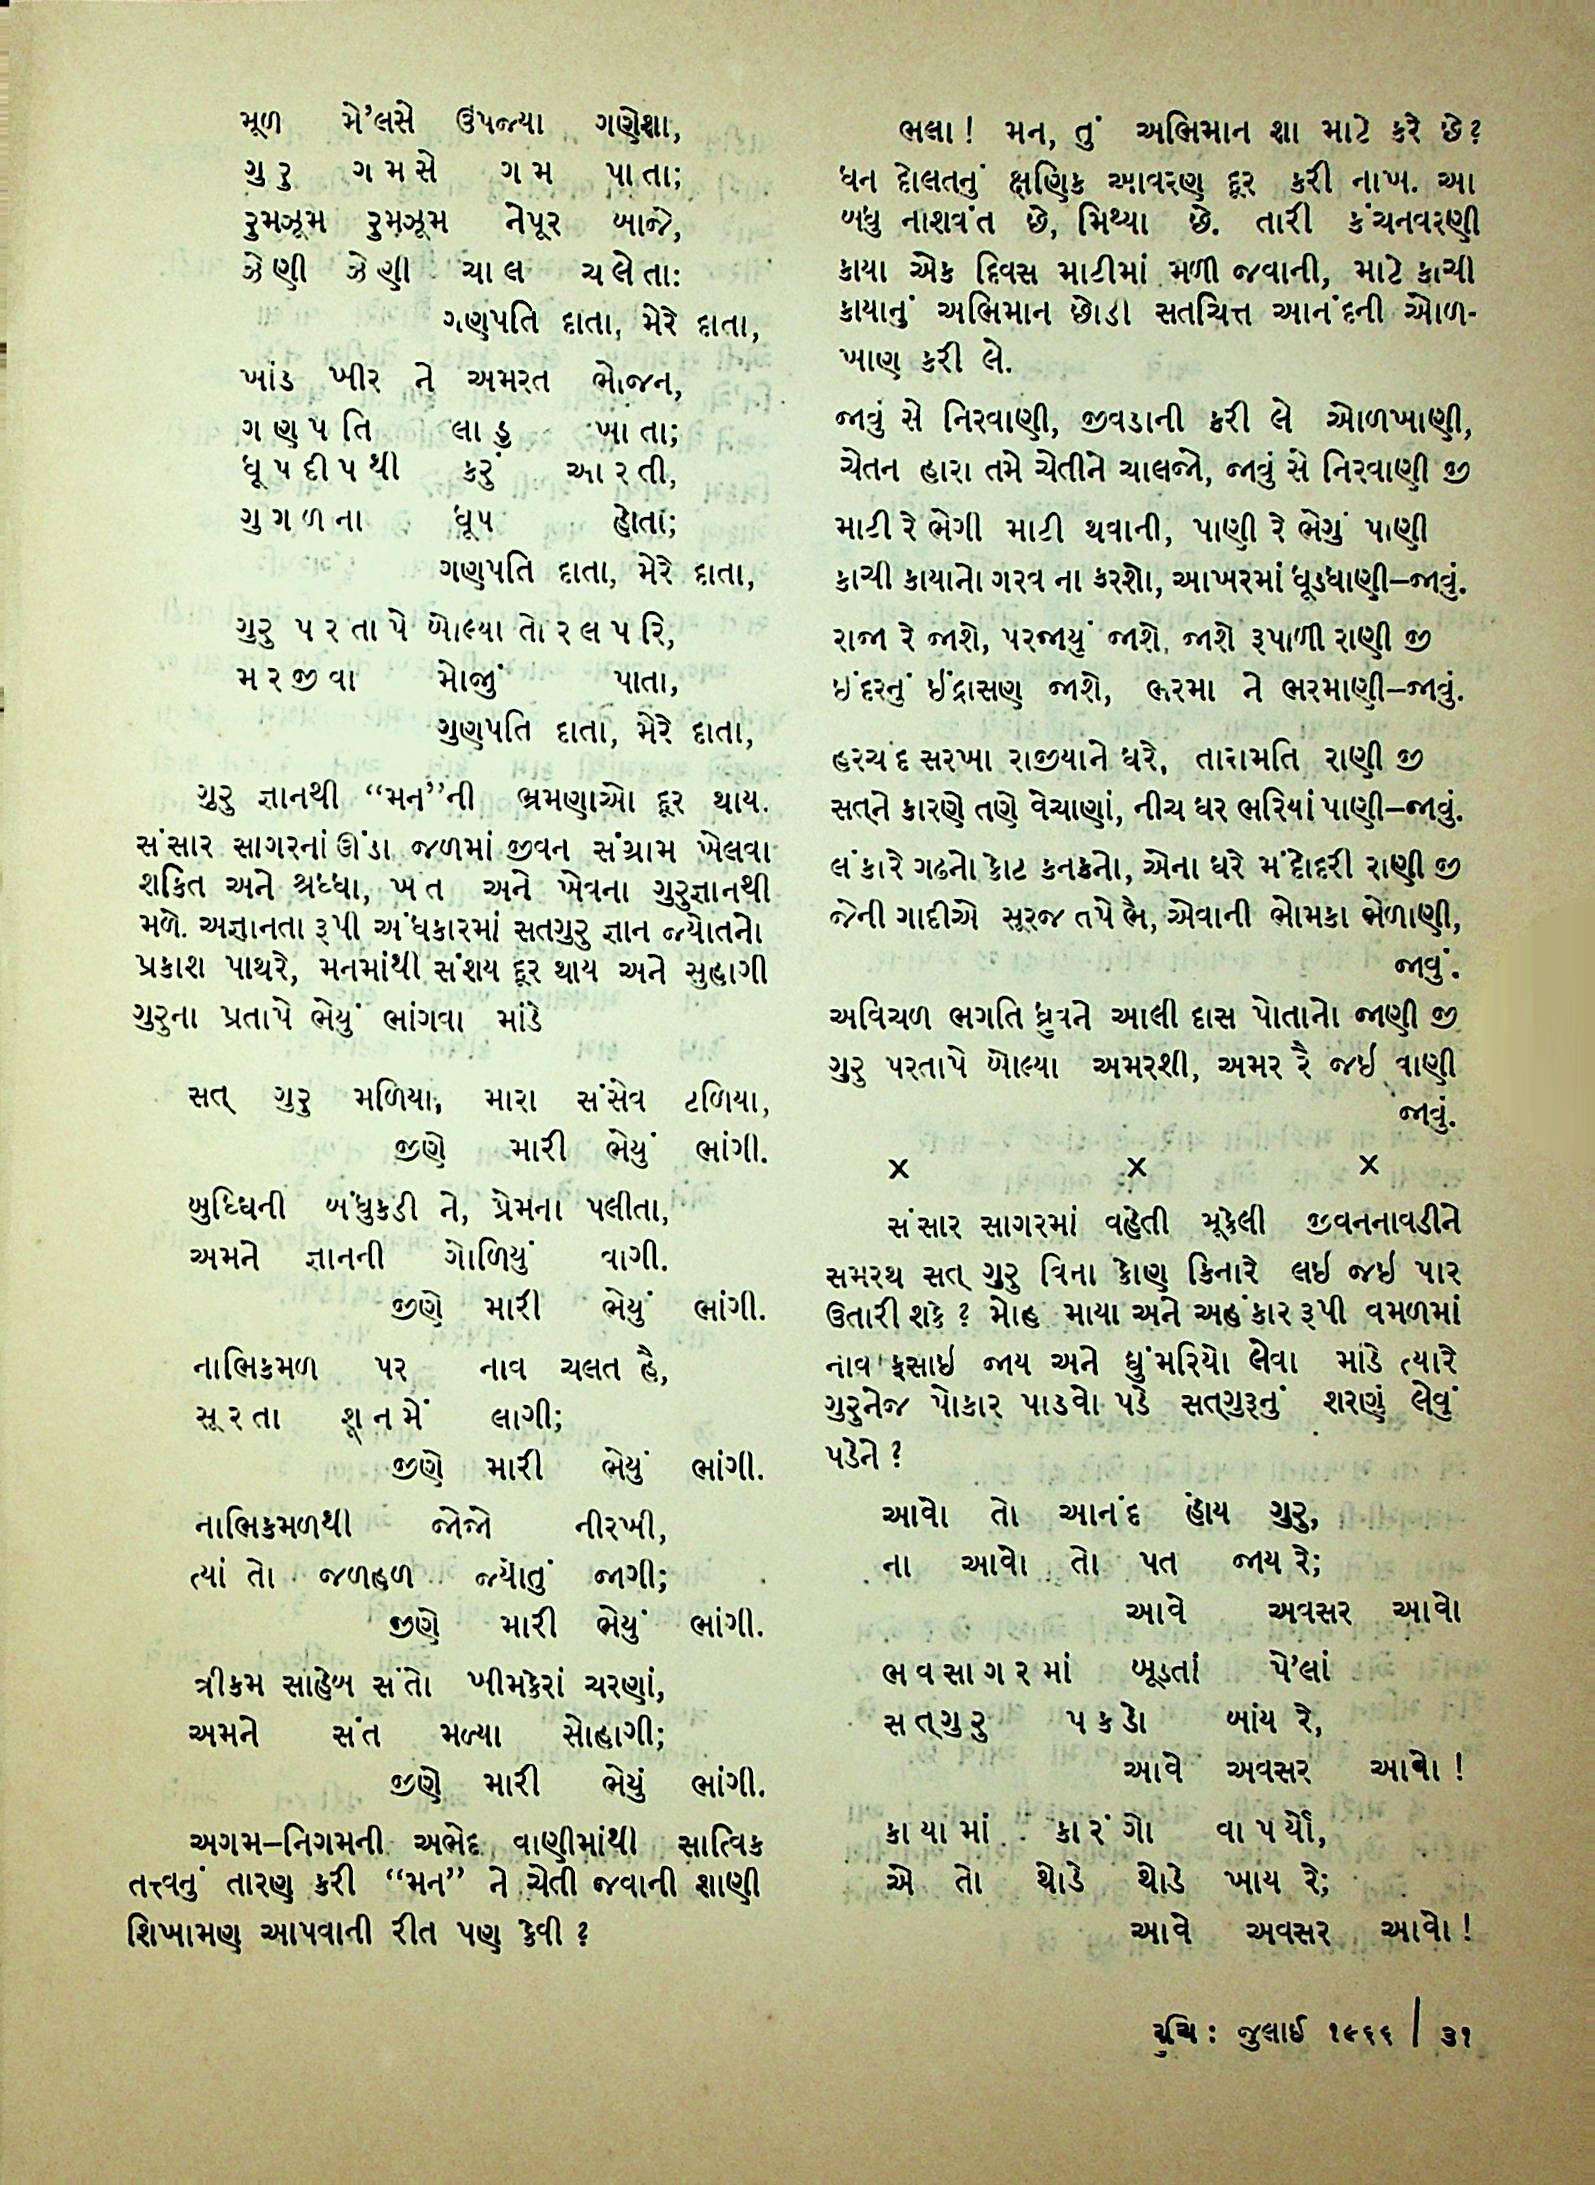 મૂળ મે'લસે ઉપજ્યા ગણેશા,
ગુરુ ગમસે ગમ પાતા;
રુમઝૂમ રુમઝૂમ નેપૂર બાજે,
ઝેણી ઝેણી ચાલ ચલેતાઃ
ગણપતિ દાતા, મેરે દાતા,
ખાંડ ખીર ને અમરત ભોજન,
ગણપતિ લાડુ ખાતા;
ધૂપદીપથી કરું આરતી,
ગુગળના ધૂપ હોતા;
ગણપતિ દાતા, મેરે દાતા,
ગુરુ પરતાપે બોલ્યા તોરલપરિ,
મરજીવા મોજું પાતા,
ગુણપતિ દાતા, મેરે દાતા,
ગુરુ જ્ઞાનથી “મન”ની ભ્રમણાઓ દૂર થાય.
સંસાર સાગરનાં ઊંડા જળમાં જીવન સંગ્રામ ખેલવા
શકિત અને શ્રધ્ધા, ખંત અને ખેવના ગુરુજ્ઞાનથી
મળે. અજ્ઞાનતા રૂપી અંધકારમાં સતગુરુ જ્ઞાન જ્યોતનો
પ્રકાશ પાથરે, મનમાંથી સંશય દૂર થાય અને સુહાગી
ગુરુના પ્રતાપે ભેયું ભાંગવા માંડે
સત્ ગુરુ મળિયા, મારા સંસેવ ટળિયા,
જીણે મારી ભેયું ભાંગી.
બુધ્ધિની બંધુકડી ને, પ્રેમના પલીતા,
અમને જ્ઞાનની ગોળિયું વાગી.
જીણે મારી ભેયું ભાંગી.
નાભિકમળ પર નાવ ચલત હૈ,
સૂરતા શૂનમેં લાગી;
જીણે મારી ભેયું ભાંગી.
નાભિકમળથી જોજો નીરખી,
ત્યાં તો જળહળ જ્યોતું જાગી;
જીણે મારી ભેયું ભાંગી.
ત્રીકમ સાહેબ સંતો ખીમકેરાં ચરણાં,
અમને સંત મળ્યા સોહાગી;
જીણે મારી ભેયું ભાંગી.
અગમ–નિગમની અભેદ વાણીમાંથી સાત્વિક
તત્ત્વનું તારણ કરી “મન” ને ચેતી જવાની શાણી
શિખામણ આપવાની રીત પણ કેવી ?
ભલા ! મન, તું અભિમાન શા માટે કરે છે?
ધન દોલતનું ક્ષણિક આવરણ દૂર કરી નાખ. આ
બધુ નાશવંત છે, મિથ્યા છે. તારી કંચનવરણી
કાયા એક દિવસ માટીમાં મળી જવાની, માટે કાચી
કાયાનું અભિમાન છોડી સતચિત્ત આનંદની ઓળ-
ખાણ કરી લે.
જાવું સે નિરવાણી, જીવડાની કરી લે ઓળખાણી,
ચેતન હારા તમે ચેતીને ચાલજો, જાવું સે નિરવાણી જી
માટી રે ભેગી માટી થવાની, પાણી રે ભેગું પાણી
કાચી કાયાનો ગરવ ના કરશો, આખરમાં ધૂડધાણી–જાવું.
રાજા રે જાશે, પરજાયું જાશે, જાશે રૂપાળી રાણી જી
ઇંદરનું ઈંદ્રાસણ જાશે, ભરમા ને ભરમાણી–જાવું.
હરચંદ સરખા રાજીયાને ઘરે, તારામતિ રાણી જી
સત્‌ને કારણે તણે વેચાણાં, નીચ ઘર ભરિયાં પાણી–જાવું.
લંકારે ગઢનો કોટ કનકનો, એના ઘરે મંદોદરી રાણી જી
જેની ગાદીએ સૂરજ તપે ભૈ, એવાની ભોમકા ભેળાણી,
જાવું.
અવિચળ ભગતિ ધ્રુવને આલી દાસ પોતાનો જાણી જી
ગુરુ પરતાપે બોલ્યા અમરશી, અમર રૈ જઇ વાણી
જાવું.
x x x
સંસાર સાગરમાં વહેતી મૂકેલી જીવનનાવડીને
સમરથ સત્ ગુરુ વિના કોણ કિનારે લઇ જઇ પાર
ઉતારી શકે ? મોહ માયા અને અહંકાર રૂપી વમળમાં
નાવ ફસાઇ જાય અને ઘુંમરિયો લેવા માંડે ત્યારે
ગુરુનેજ પોકાર પાડવો પડે સત્‌ગુરૂનું શરણું લેવું
પડેને ?
આવો તો આનંદ હોય ગુરુ,
ના આવો તો પત જાય રે;
આવે અવસર આવો
ભવસાગરમાં બૂડતાં પે'લાં
સત્‌ગુરુ પકડો બાંય રે,
આવે અવસર આવો !
કાયામાં કારંગો વાપર્યો,
એ તો થોડે થોડે ખાય રે;
આવે અવસર આવો !
રુચિ : જુલાઈ ૧૯૬૬ / ૩૧